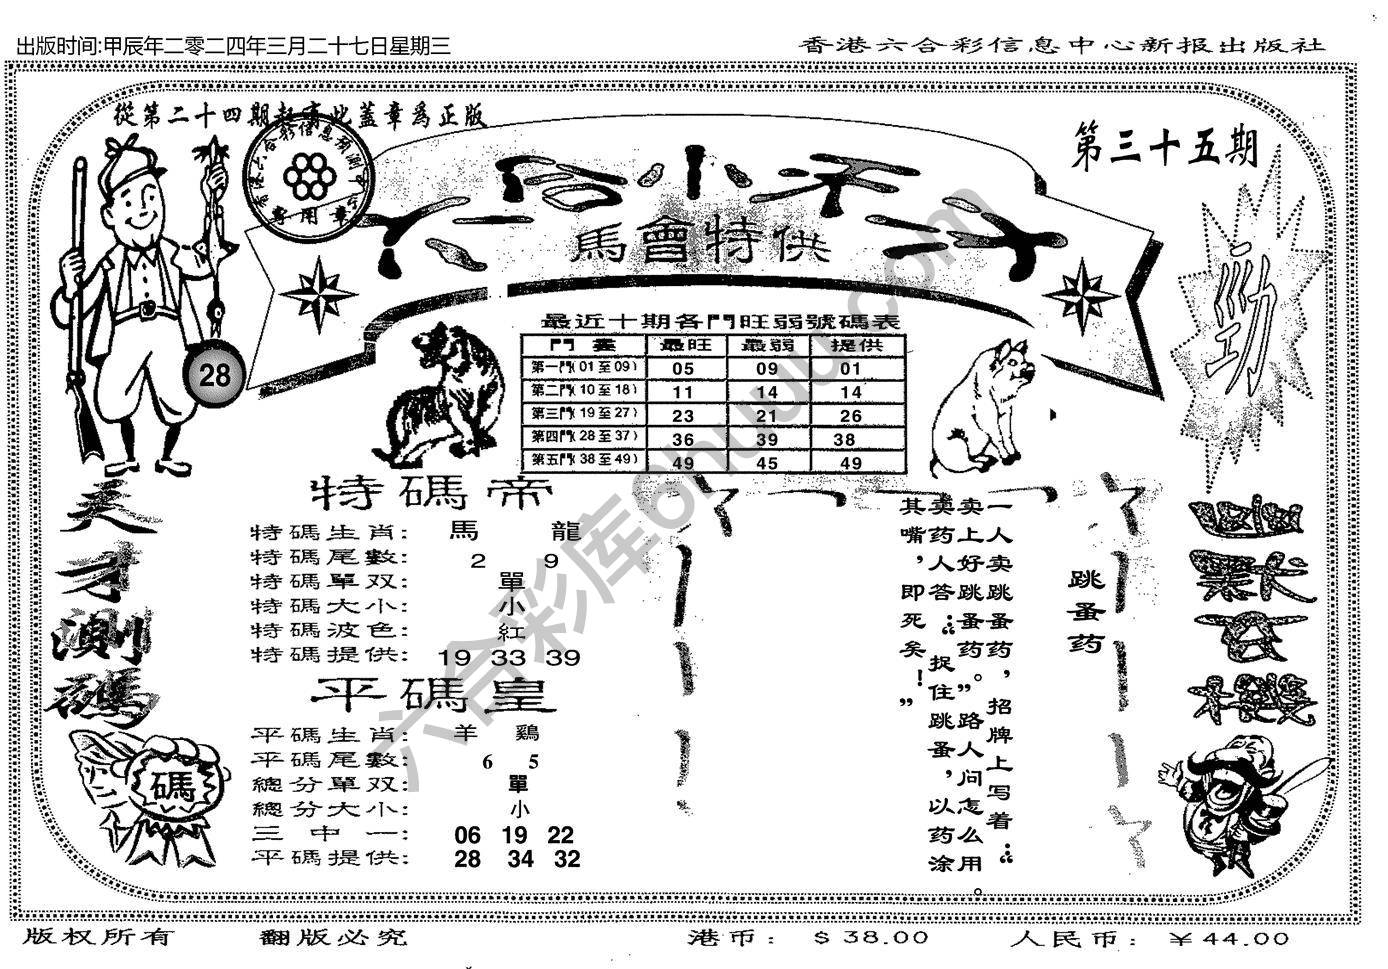 出版时间:甲辰年二零二四年三月二十七日星期三
香港六合彩信息中心新报出版社
從第二十四期起盖此蓋章爲正版
第三十五期
香港六合彩信息預測中心
專用章
馬會特供
勁
28
最近十期各門旺弱號碼表
門 最旺 最弱 提供
第一門(01至09) 05 09 01
第二門(10至18) 11 14 14
第三門(19至27) 23 21 26
第四門(28至37) 36 39 38
第五門(38至49) 49 45 49
天才測碼
特碼帝
特碼生肖: 馬 龍
特碼尾數: 2 9
特碼單双: 單
特碼大小: 小
特碼波色: 紅
特碼提供: 19 33 39
平碼皇
平碼生肖: 羊 鷄
平碼尾數: 6 5
總分單双: 單
總分大小: 小
三中一: 06 19 22
平碼提供: 28 34 32
碼
跳蚤药
一人卖跳蚤药，招牌上写着：“
卖上好跳蚤药。”路人问怎么用。
卖药人答：“捉住跳蚤，以药涂
其嘴，即死矣！”
六合彩库6huu.com
版权所有
翻版必究
港币: $38.00
人民币: ￥44.00